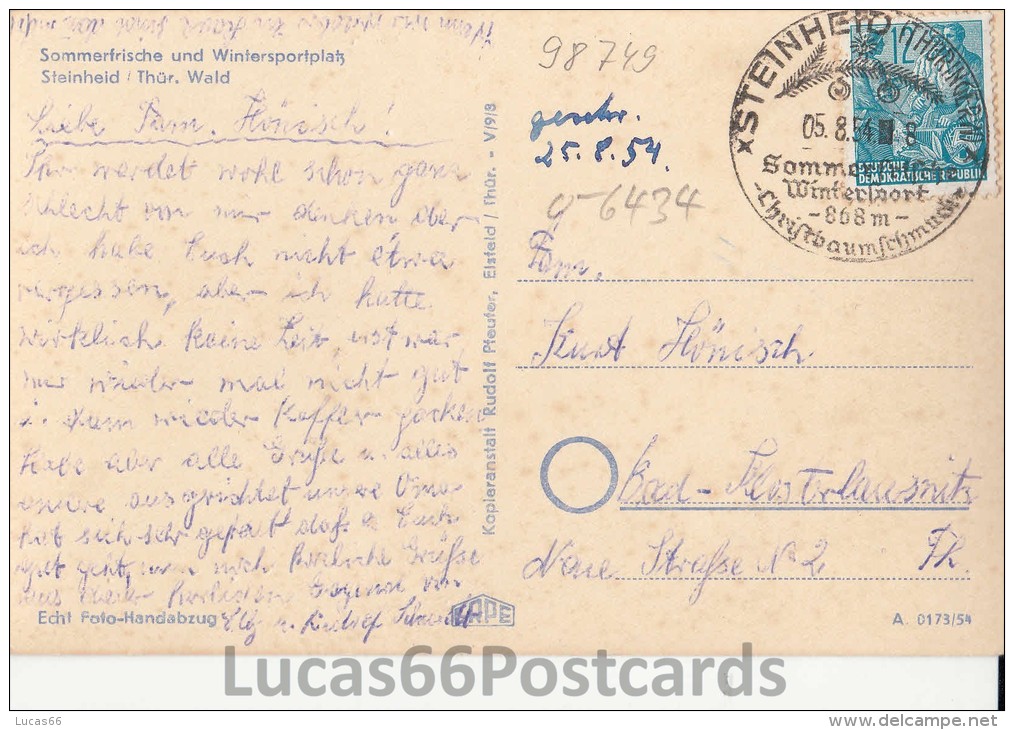 Wenn
Sommerfrische und Wintersportplatz
Steinheid / Thür. Wald
Liebe Fam. Hönisch!
Ihr werdet wohl schon ganz
schlecht von mir denken aber
ich habe Euch nicht etwa
vergessen, aber ich hatte
wirklich keine Zeit, erst war
mir wieder mal nicht gut
dann wieder Koffer packen
Habe aber alle Grüße u. alles
andere ausgerichtet unsere Oma
hat sich sehr gefreut daß es Euch
gut geht, nun noch herzliche Grüße
aus
Gegend von
Echt Foto-Handabzug
Elly u. Rudolf
KAPE
Kopieranstalt Rudolf Pfeufer, Eisfeld / Thür. - V/9/8
98749
geschr.
25.8.54.
g-6434
STEINHEID (THÜRINGER WALD)
05.8.54 8
Sommer
Wintersport
-868m-
-Christbaumschmuck-
12
DEUTSCHE
DEMOKRATISCHE REPUBLIK
Fam.
Kurt Hönisch
Bad-Klosterlausnitz
Neue Straße No 2. Th.
A. 0173/54
Lucas66Postcards
Lucas66
www.delcampe.net